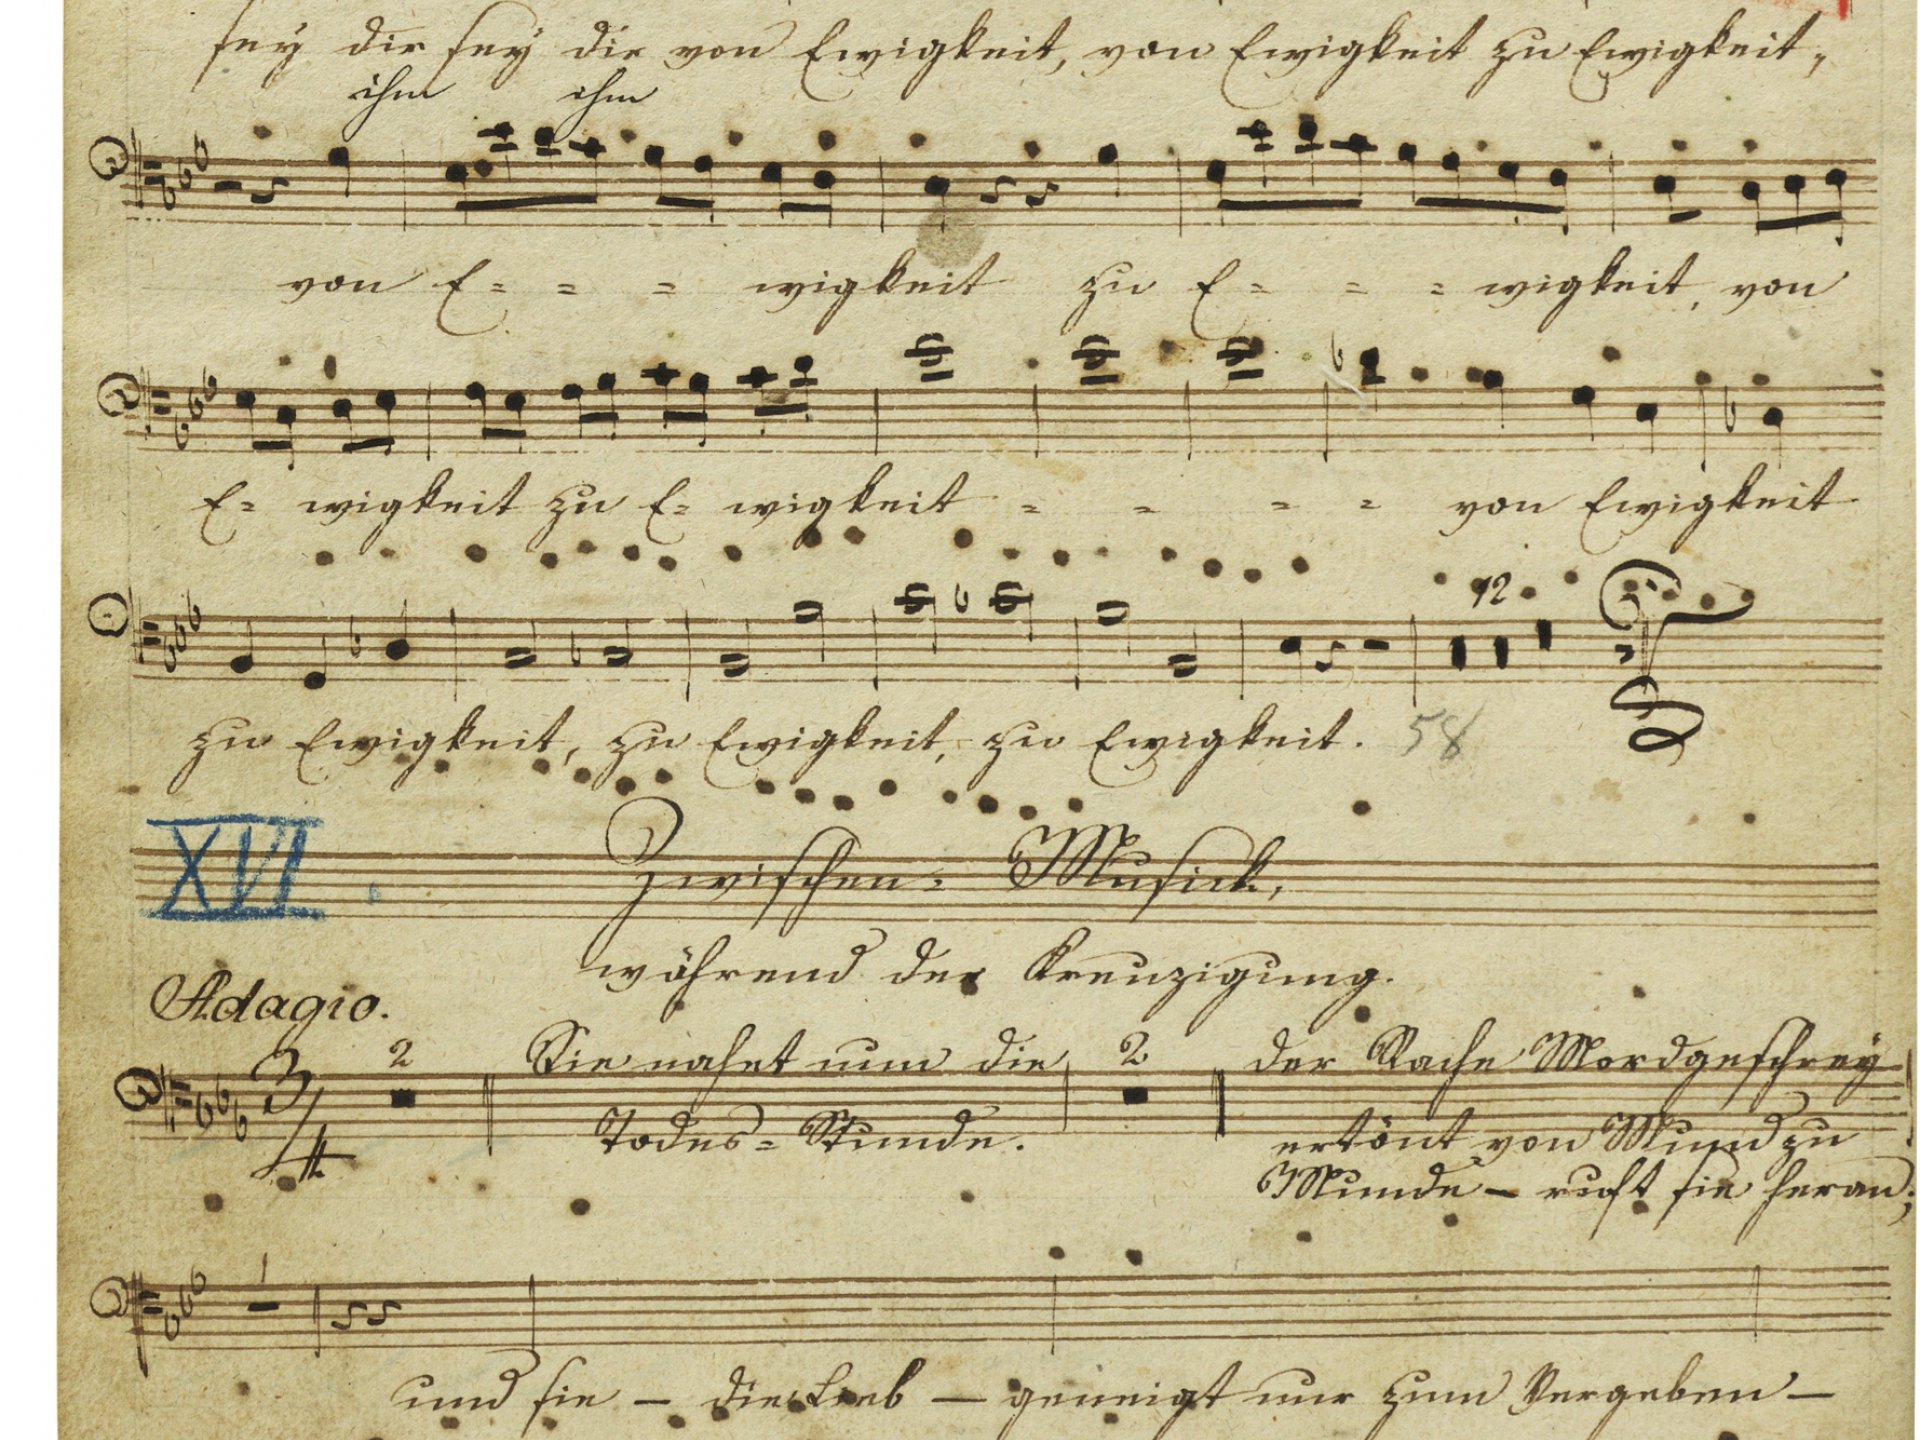 sey dir sey dir von Ewigkeit, von Ewigkeit zu Ewigkeit,
ihm ihm
von E= = = wigkeit zu E= = = wigkeit, von
E= wigkeit zu E= wigkeit = = = = von Ewigkeit
12
zu Ewigkeit, zu Ewigkeit, zu Ewigkeit. 58
XVI.
Zwischen= Musick,
während der Kreuzigung.
Adagio.
3/4 2 Sie nahet nun die 2 der Rache Mordgeschrey
Todes=Stunde. ertönt von Mund zu
Munde – ruft sie heran;
1
und sie – die Lieb – geneigt nur zum Vergeben –